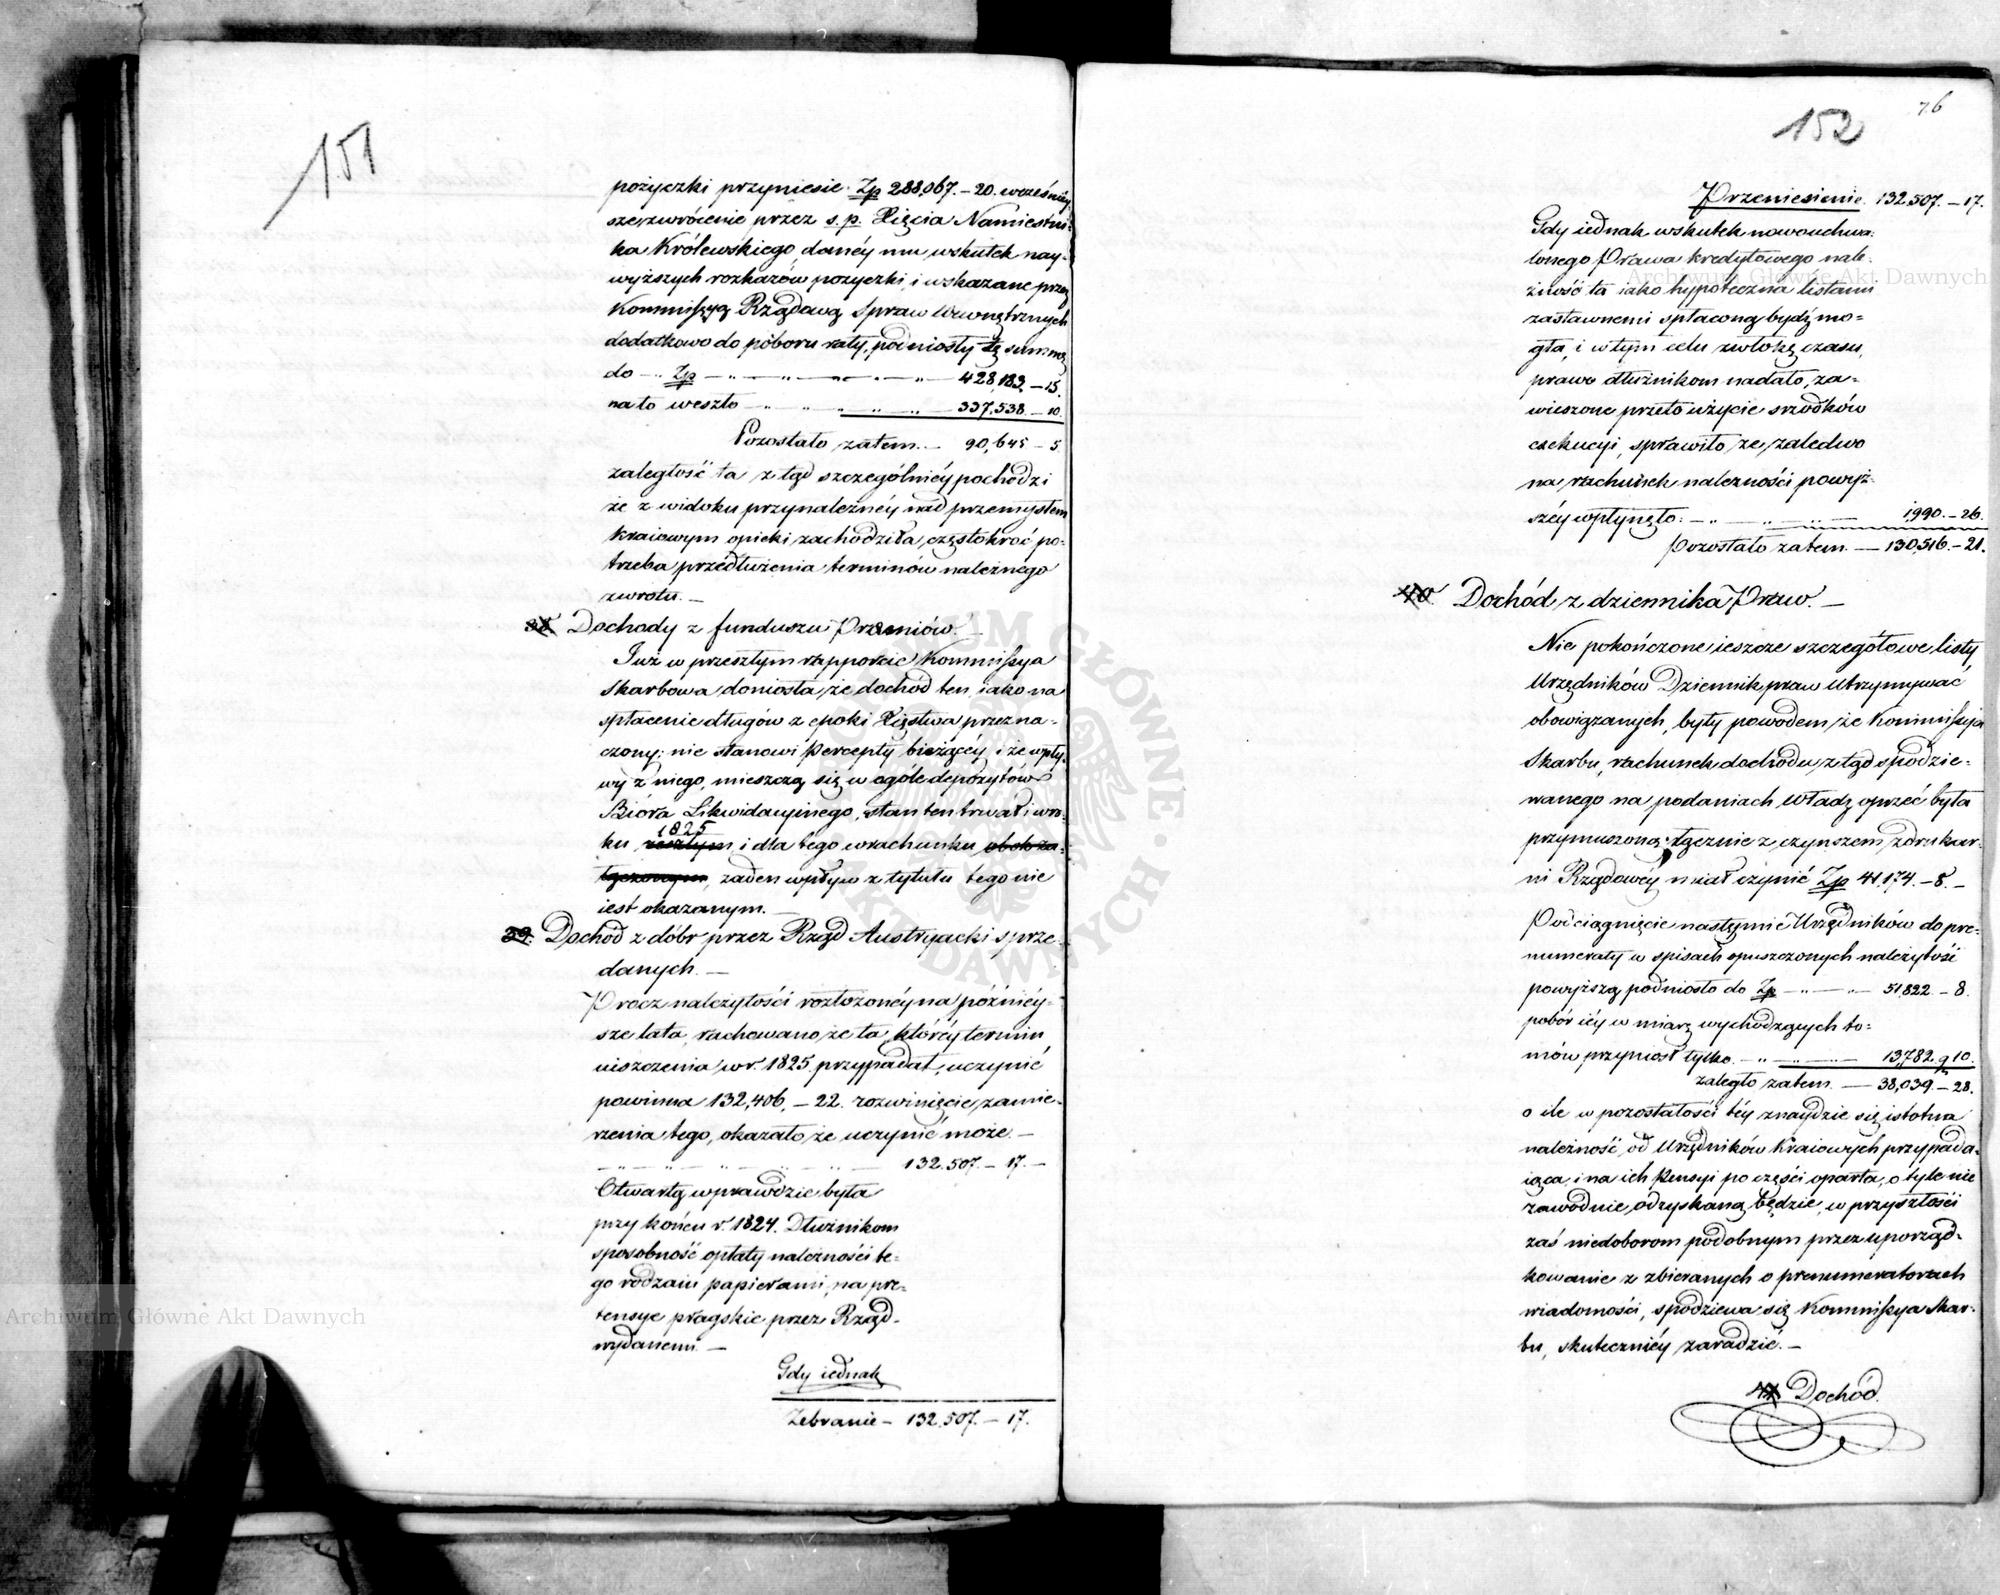 151
pożyczki przyniesie Zp 288,067. – 20. wcześniey-
sze zwrócenie przez s.p. Xięcia Namiestni-
ka Królewskiego, danéy mu wskutek nay-
wyższych rozkazów pożyczki, i wskazane przez
Kommissyą Rządową Spraw Wewnętrznych
dodatkowo do poboru raty, podniosły tę summę
do – Zp – 428,183. – 15.
na to weszło – 337,538. – 10.
Pozostało zatem. – 90,645 – 5
zaległość ta z tąd szczególniéy pochodzi
że z widoku przynależnéy nad przemysłem
kraiowym opieki zachodziła częstokroć po-
trzeba przedłużenia terminów należnego
zwrotu. –
38. Dochody z funduszu Premiów. –
Już w przeszłym rapporcie Kommissya
Skarbowa doniosła, że dochód ten, iako na
spłacenie długów z epoki Xięstwa przezna-
czony, nie stanowi percepty bieżącéy i że wpły-
wy z niego, mieszczą się w ogóle depozytów
Bióra Likwidacyinego, stan ten trwał i w ro-
1825
ku zeszłym i dla tego w rachunku obok za-
łączonym, żaden wpływ z tytułu tego nie
iest okazanym. –
39. Dochód z dóbr przez Rząd Austryacki sprze-
danych. –
Procz należytości rozłożonéy na późniéy-
sze lata rachowano że ta, któréy termin
uiszczenia w r. 1825. przypadał, uczynić
powinna 132,406. – 22. rozwinięcie zamie-
rzenia tego, okazało że uczynić może –
132.507. – 17. –
Otwartą wprawdzie była
przy końcu r. 1824. Dłużnikom
sposobność opłaty należności te-
go rodzaiu papierami, na pre-
tensye pragskie przez Rząd
wydanemi. –
Gdy iednak
Zebranie – 132.507. – 17.
76
152
Przeniesienie. 132.507. – 17.
Gdy iednak wskutek nowouchwa-
lonego Prawa kredytowego nale-
żność ta iako hypoteczna listami
zastawnemi spłaconą bydź mo-
gła, i w tym celu zwłokę czasu,
prawo dłużnikom nadało, za-
wieszone przeto użycie srzodków
exekucyi, sprawiło że, zaledwo
na rachunek należności powyż-
széy wpłynęło: – 1,990. – 26.
Pozostało zatem. – 130,516. – 21.
40. Dochód z dziennika Praw. –
Nie pokończone ieszcze szczegółowe listy
Urzędników Dziennik praw utrzymywać
obowiązanych, były powodem, że Kommissya
Skarbu, rachunek dochodu z tąd spodzie-
wanego na podaniach Władz oprzeć była
przymuszoną; łącznie z czynszem z drukar-
ni Rządowéy miał czynić Zp 41,174. – 8. –
Podciągnięcie następnie Urzędników do pre-
numeraty w spisach opuszczonych należytość
powyższą podniosło do Zp – 51,822 – 8.
pobór iéy w miarę wychodzących to-
mów przyniosł tylko. – 13,782. g 10.
zaległo zatem. – 38,039. – 28.
o ile w pozostałości téy znaydzie się istotna
należność, od Urzędników Kraiowych przypada-
iąca, i na ich Pensyi po części oparta, o tyle nie
zawodnie, odzyskaną będzie, w przyszłości
zaś niedoborom podobnym przez uporząd-
kowanie z zbieranych o prenumeratorach
wiadomości, spodziewa się Kommissya Skar-
bu, skuteczniéy zaradzić. –
41 Dochód.
Archiwum Główne Akt Dawnych
Archiwum Główne Akt Dawnych